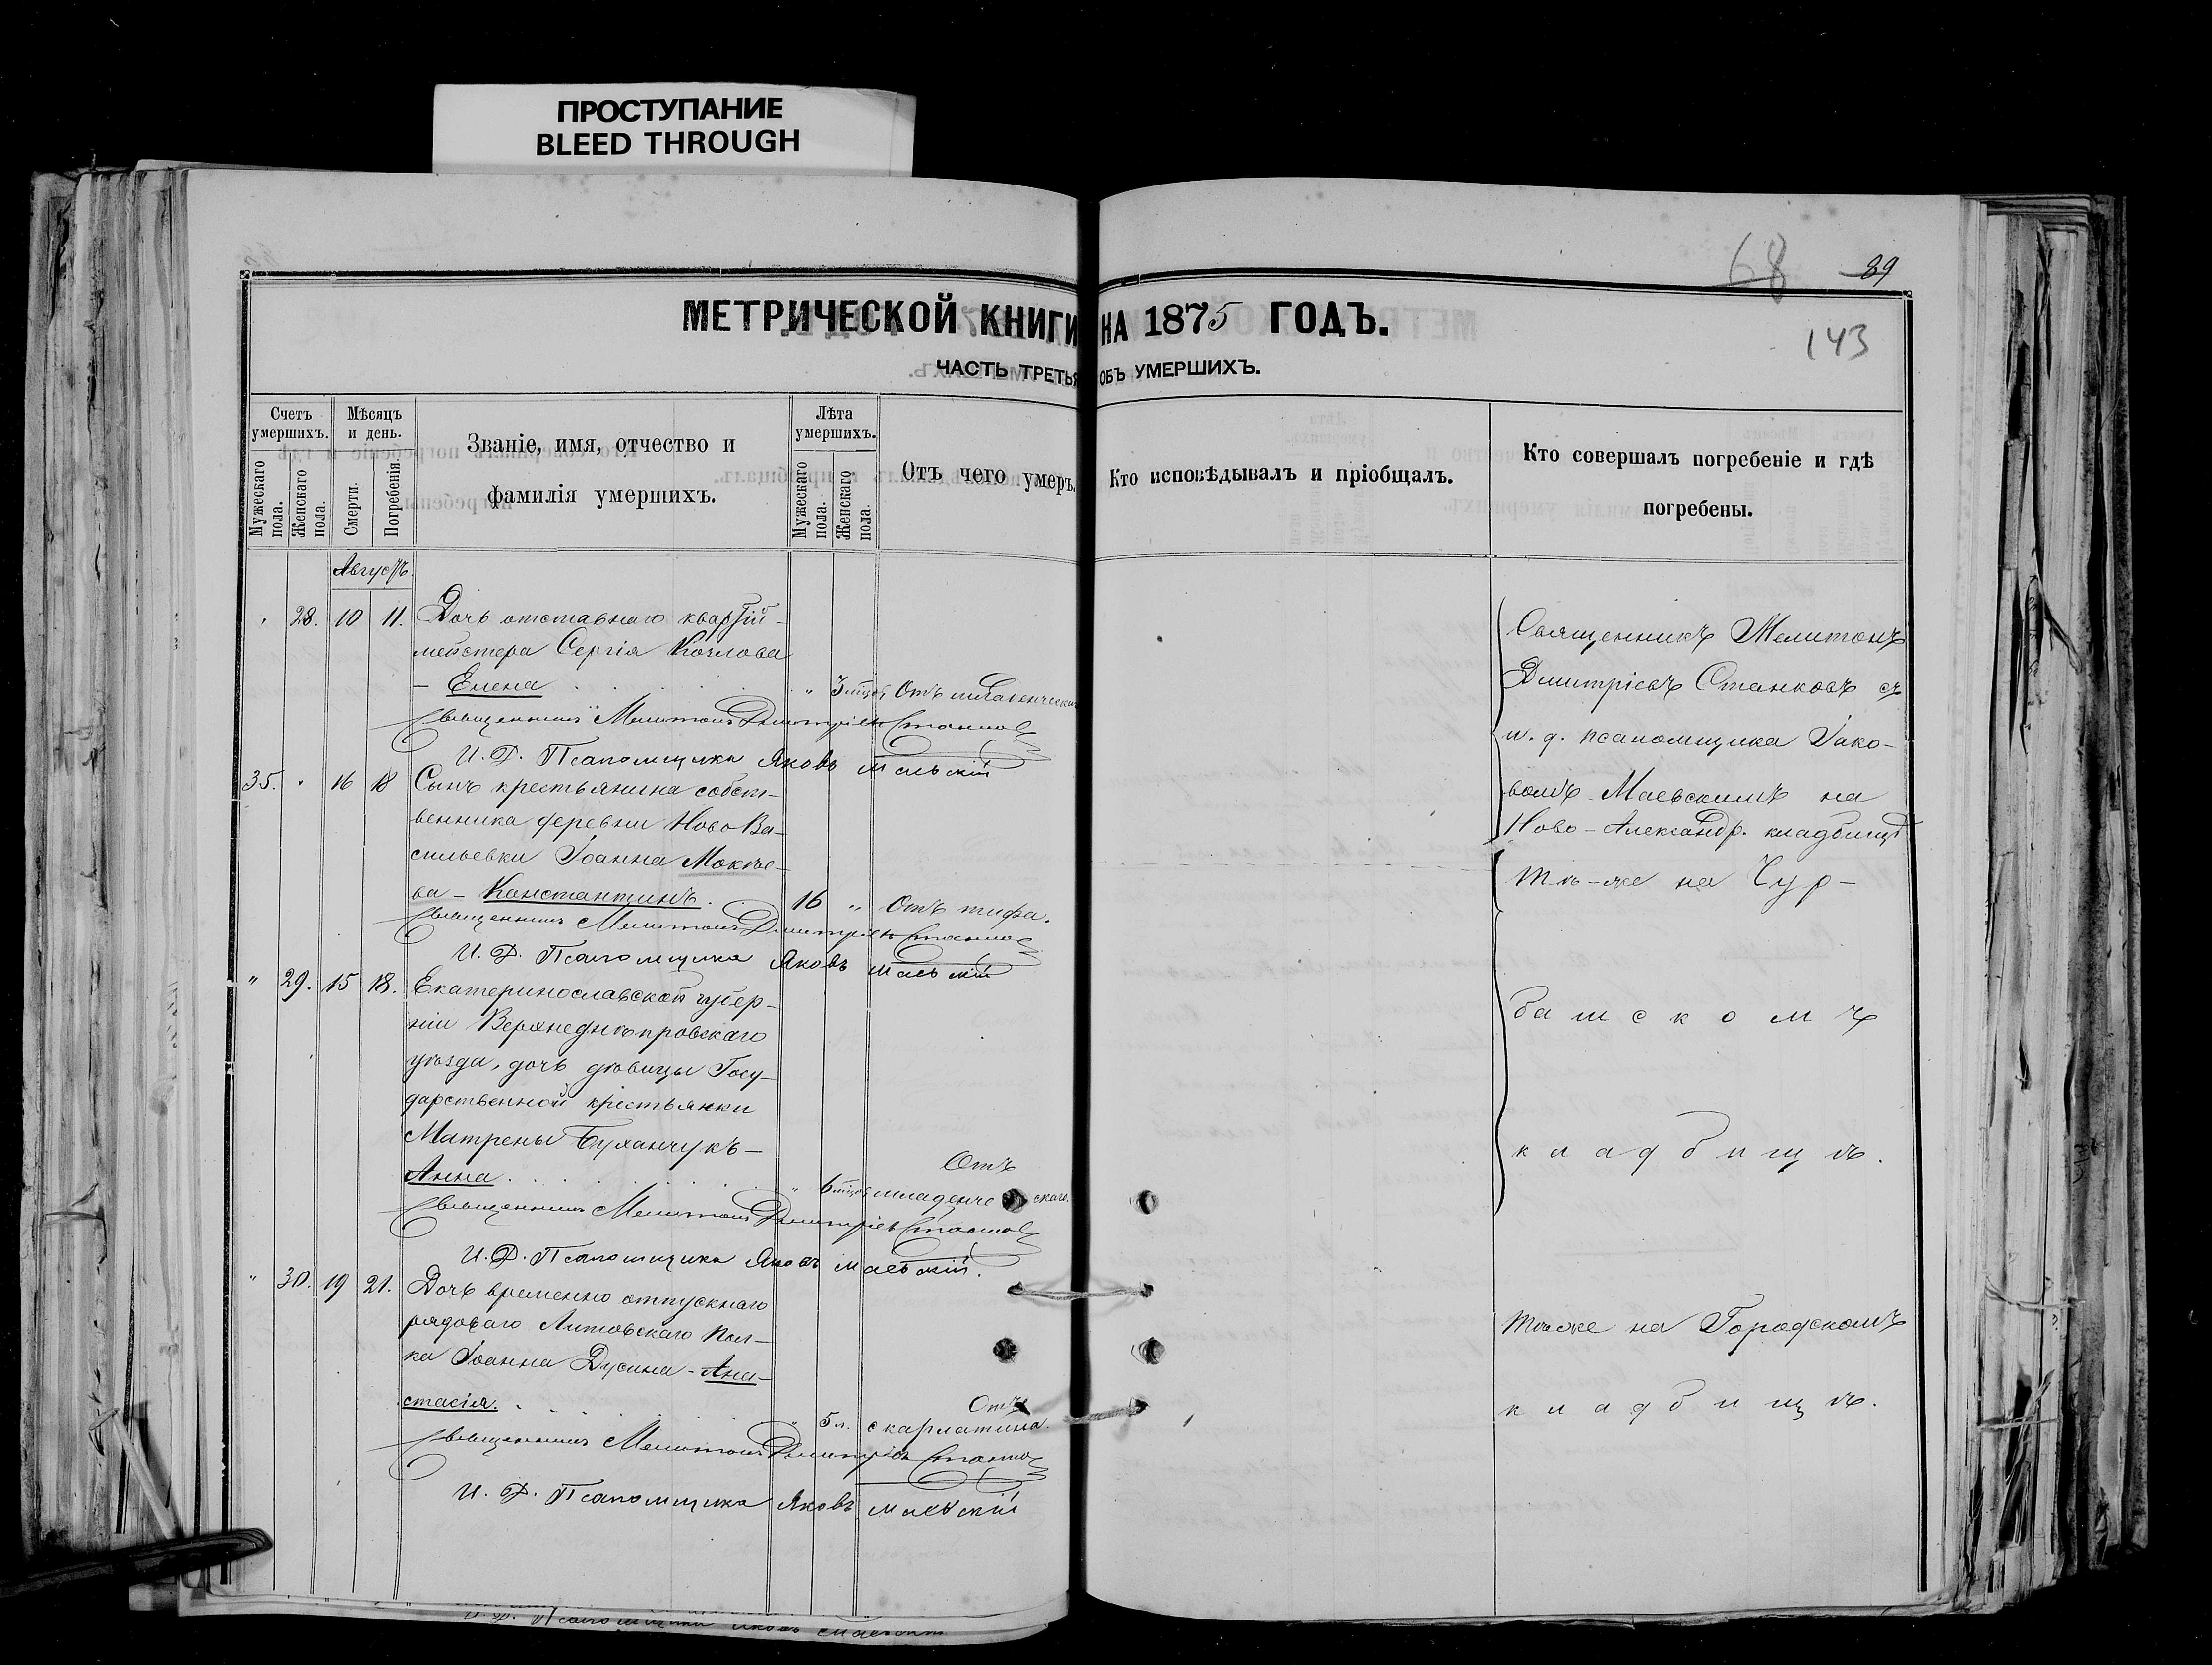 ПРОСТУПАНИЕ
BLEED THROUGH
68 89
143
МЕТРИЧЕСКОЙ КНИГИ НА 1875 ГОДЪ.
ЧАСТЬ ТРЕТЬЯ ОБЪ УМЕРШИХЪ.
Счетъ умершихъ.
Мужескаго пола.
Женскаго пола.
Мѣсяцъ и день.
Смерти.
Погребенія.
Званіе, имя, отчество и
фамилія умершихъ.
Лѣта умершихъ.
Мужескаго пола.
Женскаго пола.
Отъ чего умеръ.
Кто исповѣдывалъ и пріобщалъ.
Кто совершалъ погребеніе и гдѣ
погребены.
Августъ.
28. 10 11. Дочь отставнаго квартій-
мейстера Сергія Козлова
– Елена " 3 мцов Отъ младенческаго
Священникъ Мелитонъ Димитріевъ Станковъ
И. Д. Псаломщика Яковъ Маевскій
35. " 16 18 Сынъ крестьянина собст-
венника деревни Ново Ва-
сильевки Іоанна Мокіе-
ва – Константинъ. 16 " Отъ тифа.
Священникъ Мелитонъ Димитріевъ Станковъ
И. Д. Псаломщика Яковъ Маевскій
" 29. 15 18. Екатеринославской губер-
ніи Верхнеднѣпровскаго
уѣзда, дочь дѣвицы Госу-
дарственной крестьянки
Матрены Буханчукъ –
Анна " 6 мцов Отъ младенческаго.
Священникъ Мелитонъ Димитріевъ Станковъ
И. Д. Псаломщика Яковъ Маевскій.
" 30. 19 21. Дочь временно отпускнаго
рядоваго Литовскаго пол-
ка Іоанна Дусина – Ана-
стасія. " 5 л. Отъ скарлатина.
Священникъ Мелитонъ Димитріевъ Станковъ
И. Д. Псаломщика Яковъ Маевскій
Священникъ Мелитонъ
Димитріевъ Станковъ съ
и. д. псаломщика Іако-
вомъ Маевскимъ на
Ново-Александр. кладбищѣ
Тѣ-же на Чур-
башскомъ
кладбищѣ.
Тѣже на Городскомъ
кладбищѣ.
И. Д. Псаломщика Яковъ Маевскій